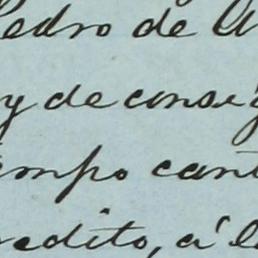 Pedro de A
y de consig
empo cant
redito, á l